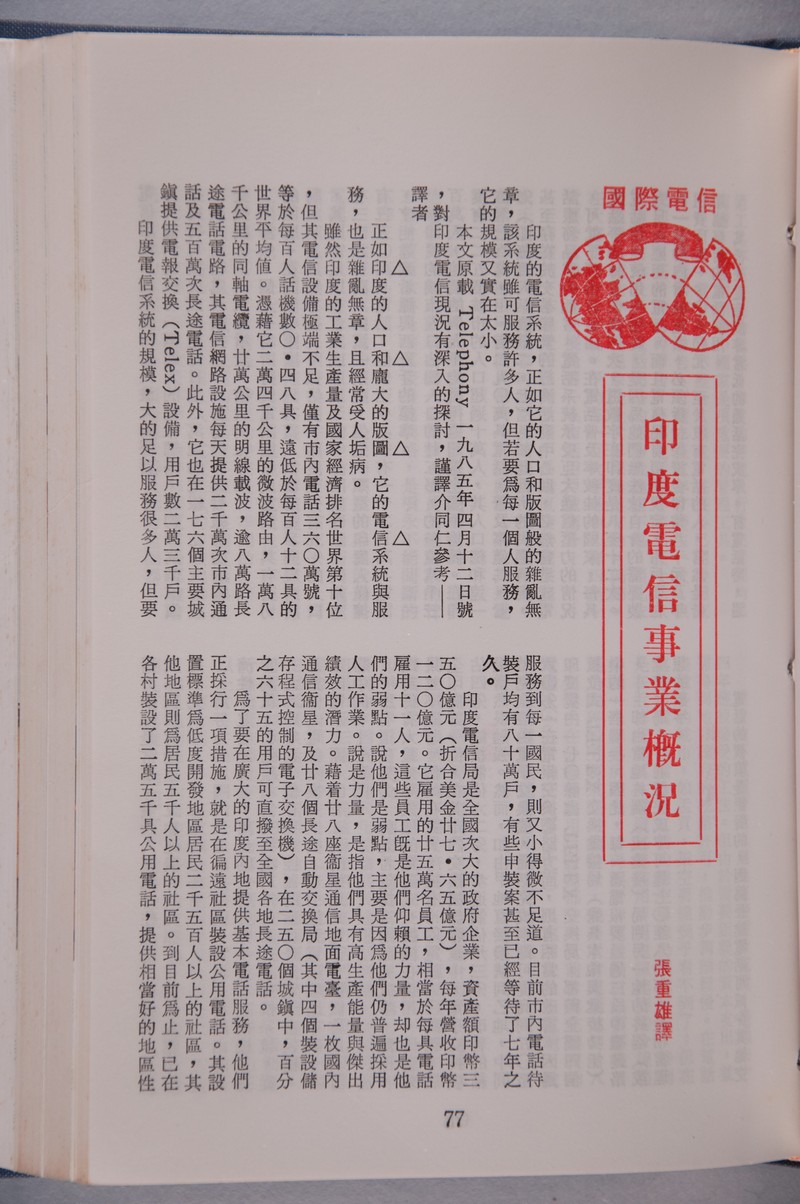 國際電信
印度電信事業概況
張重雄譯
印度的電信系統，正如它的人口和版圖般的雜亂無
章，該系統雖可服務許多人，但若要爲每一個人服務，
它的規模又實在太小。
本文原載 Telephony 一九八五年四月十二日號
，對印度電信現況有深入的探討，謹譯介同仁參考——
譯者
△　△　△　△
正如印度的人口和龐大的版圖，它的電信系統與服
務，也是雜亂無章，且經常受人垢病。
雖然印度的工業生產量及國家經濟排名世界第十位
，但其電信設備極端不足，僅有市內電話三六〇萬號，
等於每百人話機數〇•四八具，遠低於每百人十二具的
世界平均値。憑藉它二萬四千公里的微波路由，一萬八
千公里的同軸電纜，廿萬公里的明線載波，逾八萬路長
途電話電路，其電信網路設施每天提供二千萬次市內通
話及五百萬次長途電話。此外，它也在一七六個主要城
鎭提供電報交換（Telex）設備，用戶數二萬三千戶。
印度電信系統的規模，大的足以服務很多人，但要
服務到每一國民，則又小得微不足道。目前市內電話待
裝戶均有八十萬戶，有些申裝案甚至已經等待了七年之
久。
印度電信局是全國次大的政府企業，資產額印幣三
五〇億元（折合美金廿七•六五億元），每年營收印幣
一二〇億元。它雇用的廿五萬名員工，相當於每具電話
雇用十一人，這些員工旣是他們仰賴的力量，却也是他
們的弱點。說他們是弱點，主要是因爲他們仍普遍採用
人工作業。說是力量，是指他們具有高生產能量與傑出
績效的潛力。藉着廿八座衞星通信地面電臺，一枚國內
通信衞星，及廿八個長途自動交換局（其中四個裝設儲
存程式控制的電子交換機），在二五〇個城鎭中，百分
之六十五的用戶可直撥至全國各地長途電話。
爲了要在廣大的印度內地提供基本電話服務，他們
正採行一項措施，就是在偏遠社區裝設公用電話。其設
置標準爲低度開發地區居民二千五百人以上的社區，其
他地區則爲居民五千人以上的社區。到目前爲止，已在
各村裝設了二萬五千具公用電話，提供相當好的地區性
77